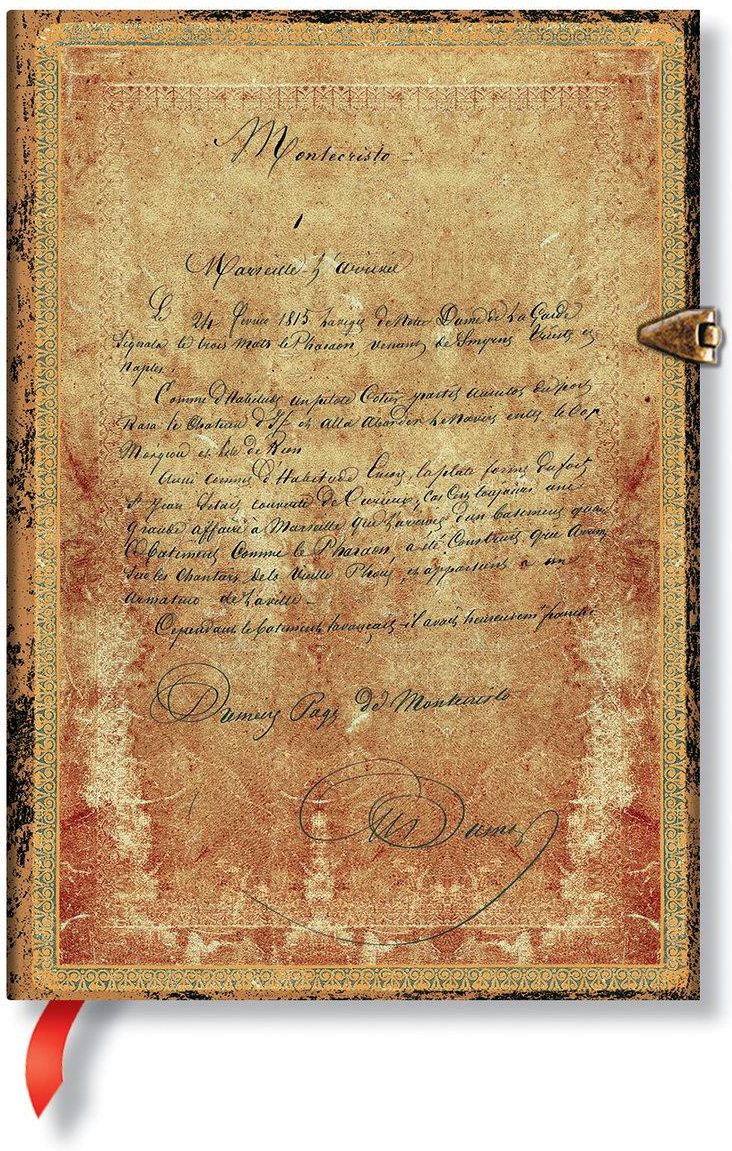 Montecristo -
1
Marseille - L'arrivée
Le 24 février 1815 la vigie de Notre Dame de La Garde
Signala le trois mats le Pharaon, venant de Smyrne Trieste et
Naples.
Comme d'Habitude un pilote Cotier partit aussitot du port
Rasa le Chateau d'If et alla aborder le Navire entre le Cap
Morgiou et l'ile de Rion
Aussi comme d'Habitude encore, la plate forme du fort
St Jean s'etait couverte de Curieux, Car C'est toujours une
grande affaire à Marseille que l'arrivée d'un batiment quand
Ce batiment Comme le Pharaon a été Construit que
Sur les Chantiers de la Vieille et appartient à un
Armateur de la ville -
Cependant le batiment avançait - il avait heureusement franchi
Dumas Page de Montecristo
Alex Dumas